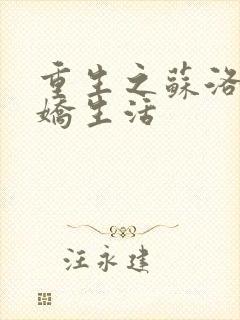 重生之蘇洛
嬌生活
汪永建